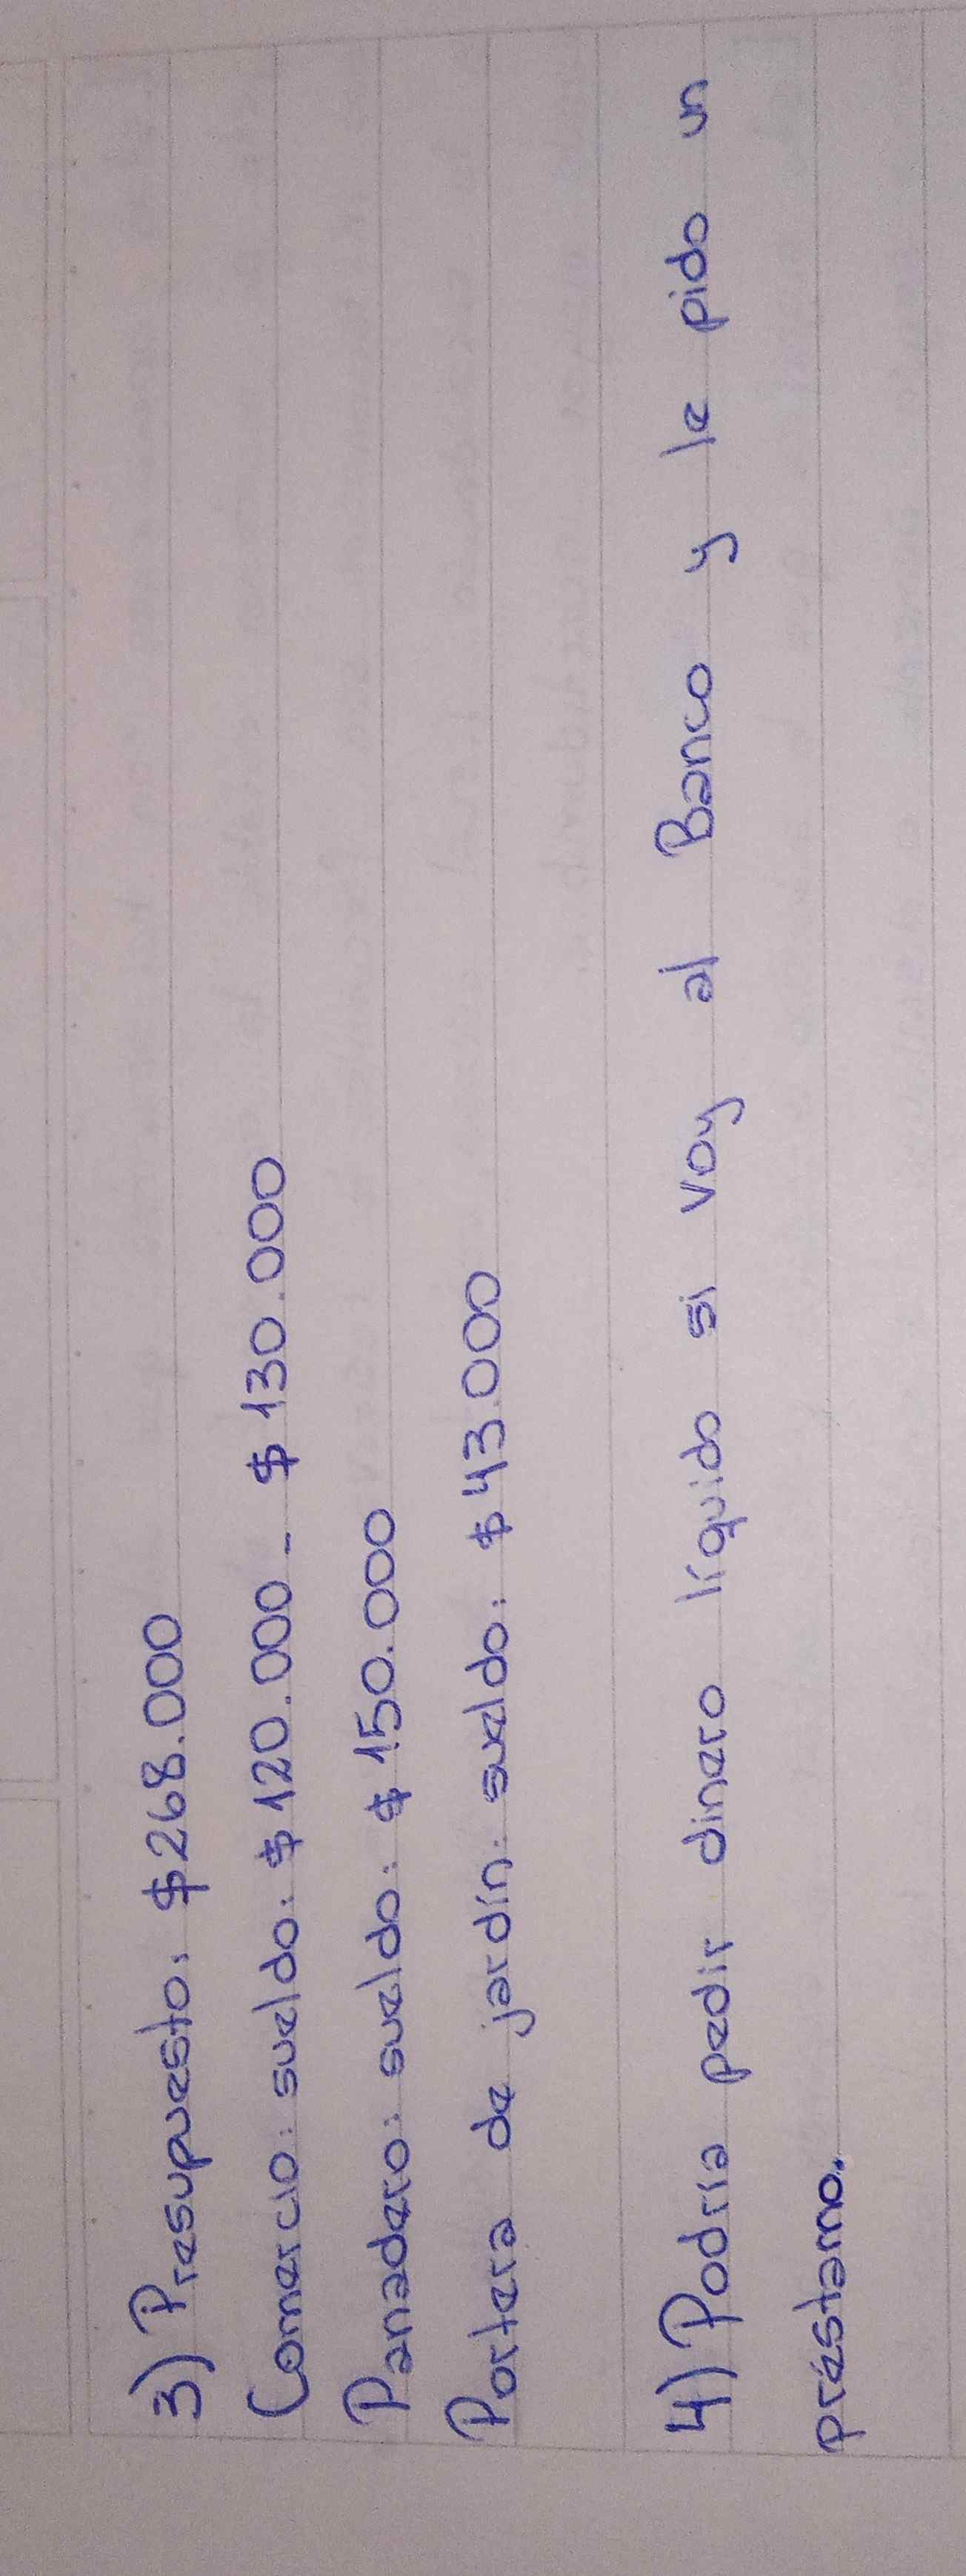 3) Presupuesto: $268.000
Comercio: sueldo: $120.000 - $130.000
Panadero: sueldo: $150.000
Portera de jardín: sueldo: $43.000
4) Podría pedir dinero líquido si voy al Banco y le pido un
préstamo.